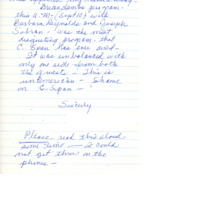 Brian Lamb's program -
this a.m. (Sept 18) with
Barbara Reynolds and Joseph
Sobran. Was the most
disgusting program that
C-Span has ever aired -
It was unbalanced with
only one side from both
the guests - This is
unAmerican - Shame
on C-Span -
Sincerely
Please read this aloud
some time - I could
not get thru on the
phones -